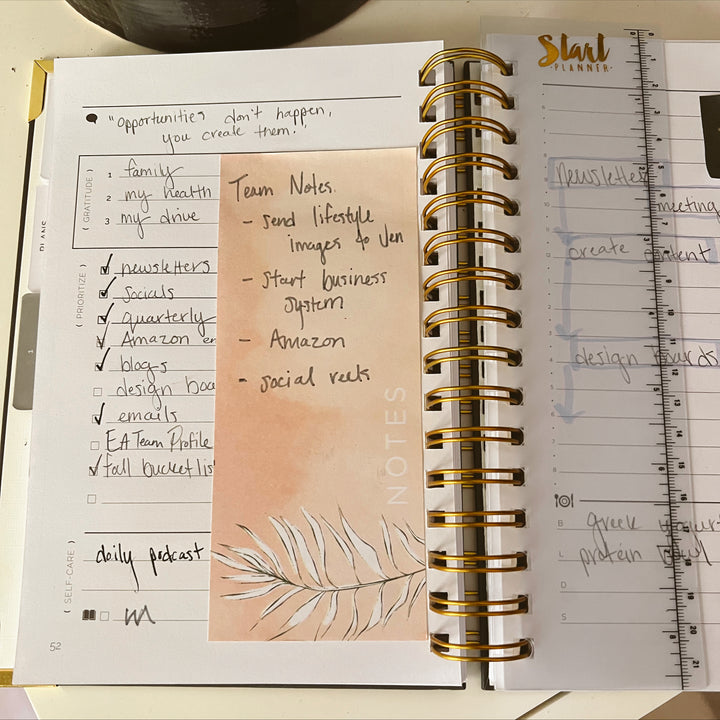 "Opportunities don't happen,
you create them."
( GRATITUDE )
1 family
2 my health
3 my drive
PLANS
( PRIORITIZE )
newsletters
socials
quarterly
Amazon
blogs
design
emails
EA Team Profile
fall bucket list
( SELF-CARE )
daily podcast
52
Team Notes.
- send lifestyle
images to Jen
- start business
system
- Amazon
- social reels
NOTES
Start
PLANNER
newsletter
meeting
create content
design boards
B greek yogurt
L protein bowl
D
S